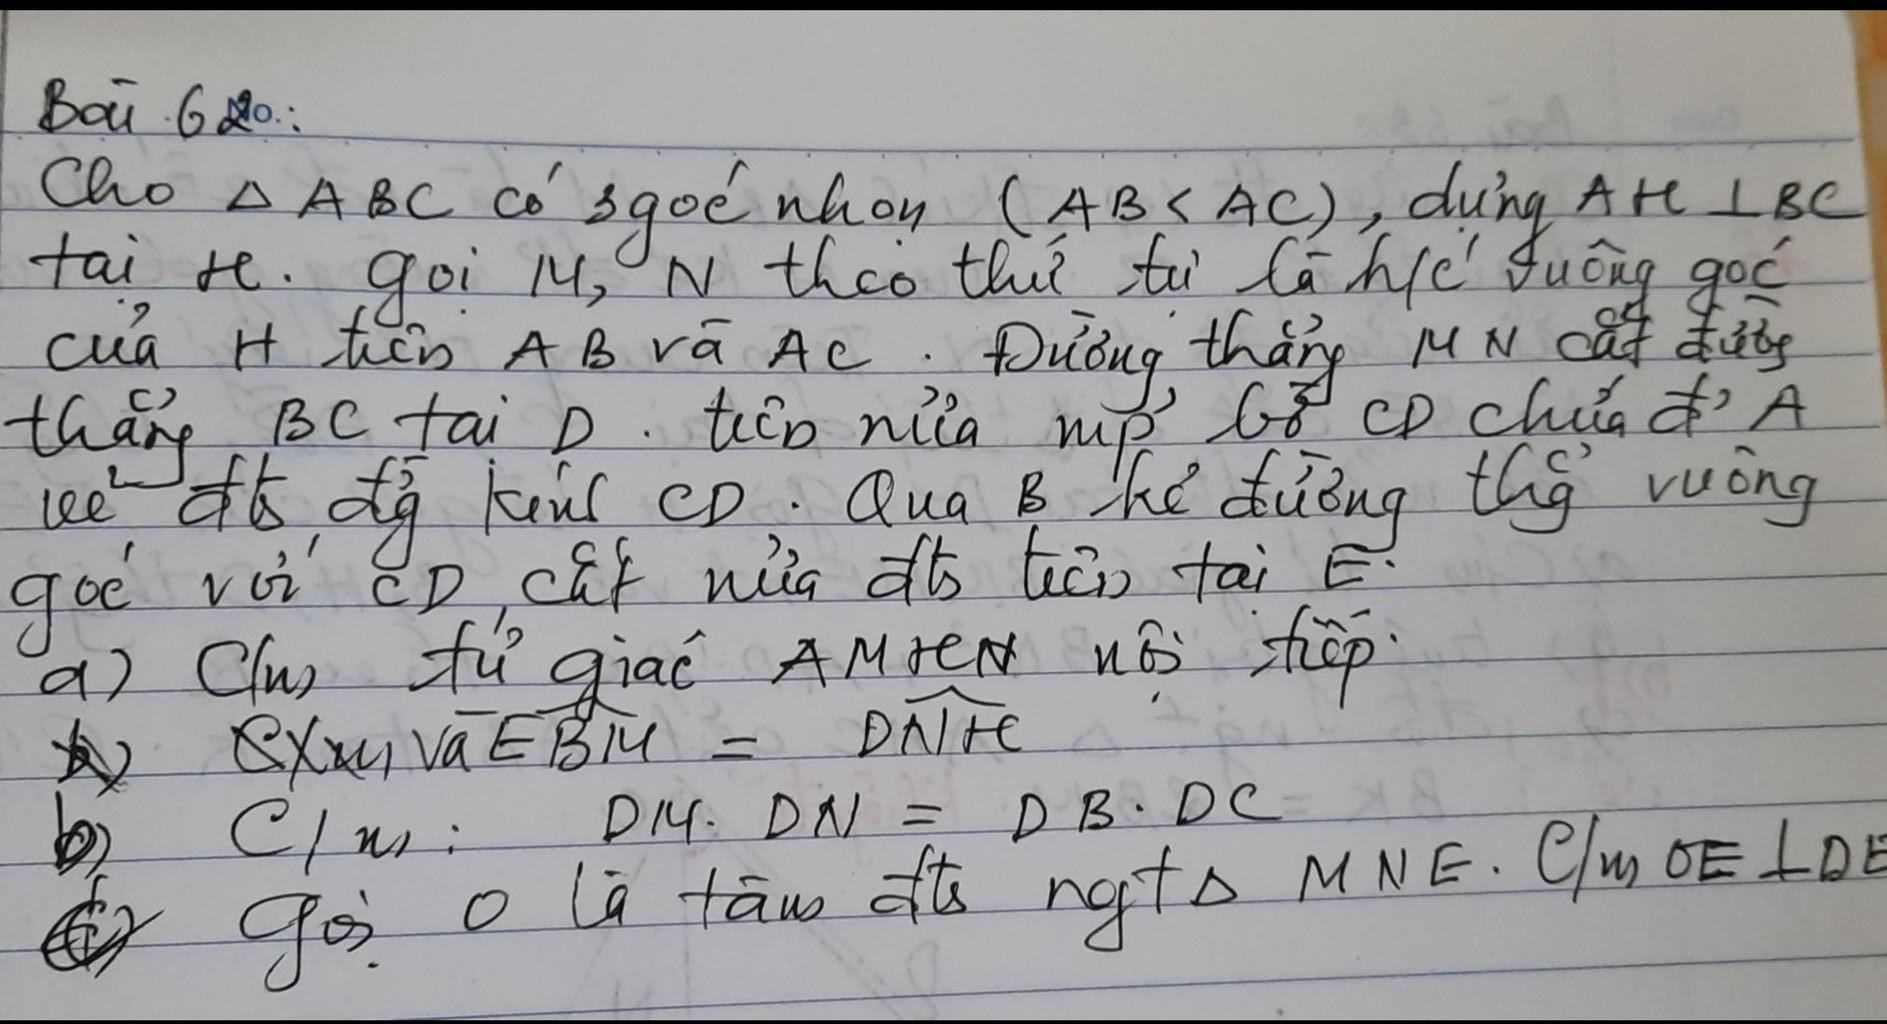 Bài 620:
Cho △ ABC có 3 góc nhọn (AB < AC), dựng AH ⊥ BC
tại H. gọi M, N theo thứ tự là h/c vuông góc
của H trên AB và AC. Đường thẳng MN cắt đường
thẳng BC tại D. trên nửa mp bờ CD chứa đ' A
vẽ đtr đg kính CD. Qua B kẻ đường thg vuông
góc với CD, cắt nửa đtr trên tại E.
a) C/m tứ giác AMHN nội tiếp.
và EBM = DNH
b) C/m: DM. DN = DB. DC
c) Gọi O là tâm đtr ngt △ MNE. C/m OE ⊥ DE